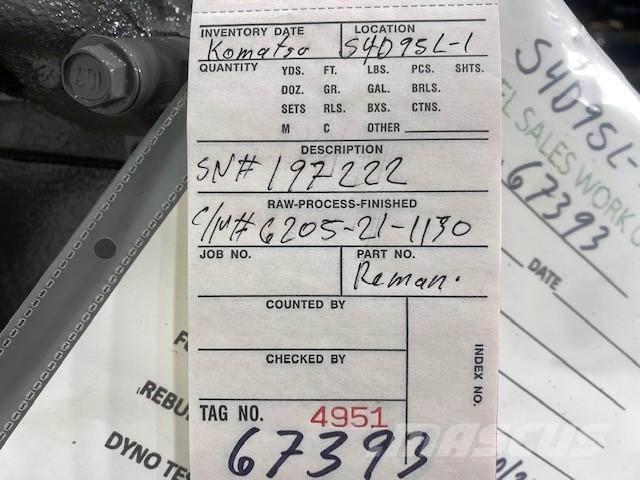 INVENTORY DATE LOCATION
Komatsu S4D95L-1
QUANTITY YDS. FT. LBS. PCS. SHTS.
DOZ. GR. GAL. BRLS.
SETS RLS. BXS. CTNS.
M C OTHER
DESCRIPTION
SN# 197222
RAW-PROCESS-FINISHED
C/M# 6205-21-1130
JOB NO. PART NO.
Reman.
COUNTED BY
CHECKED BY
INDEX NO.
TAG NO. 4951
67393
S4D95L-
EL SALES WORK O
67393
DATE
REBU
DYNO TES
107
MASCUS